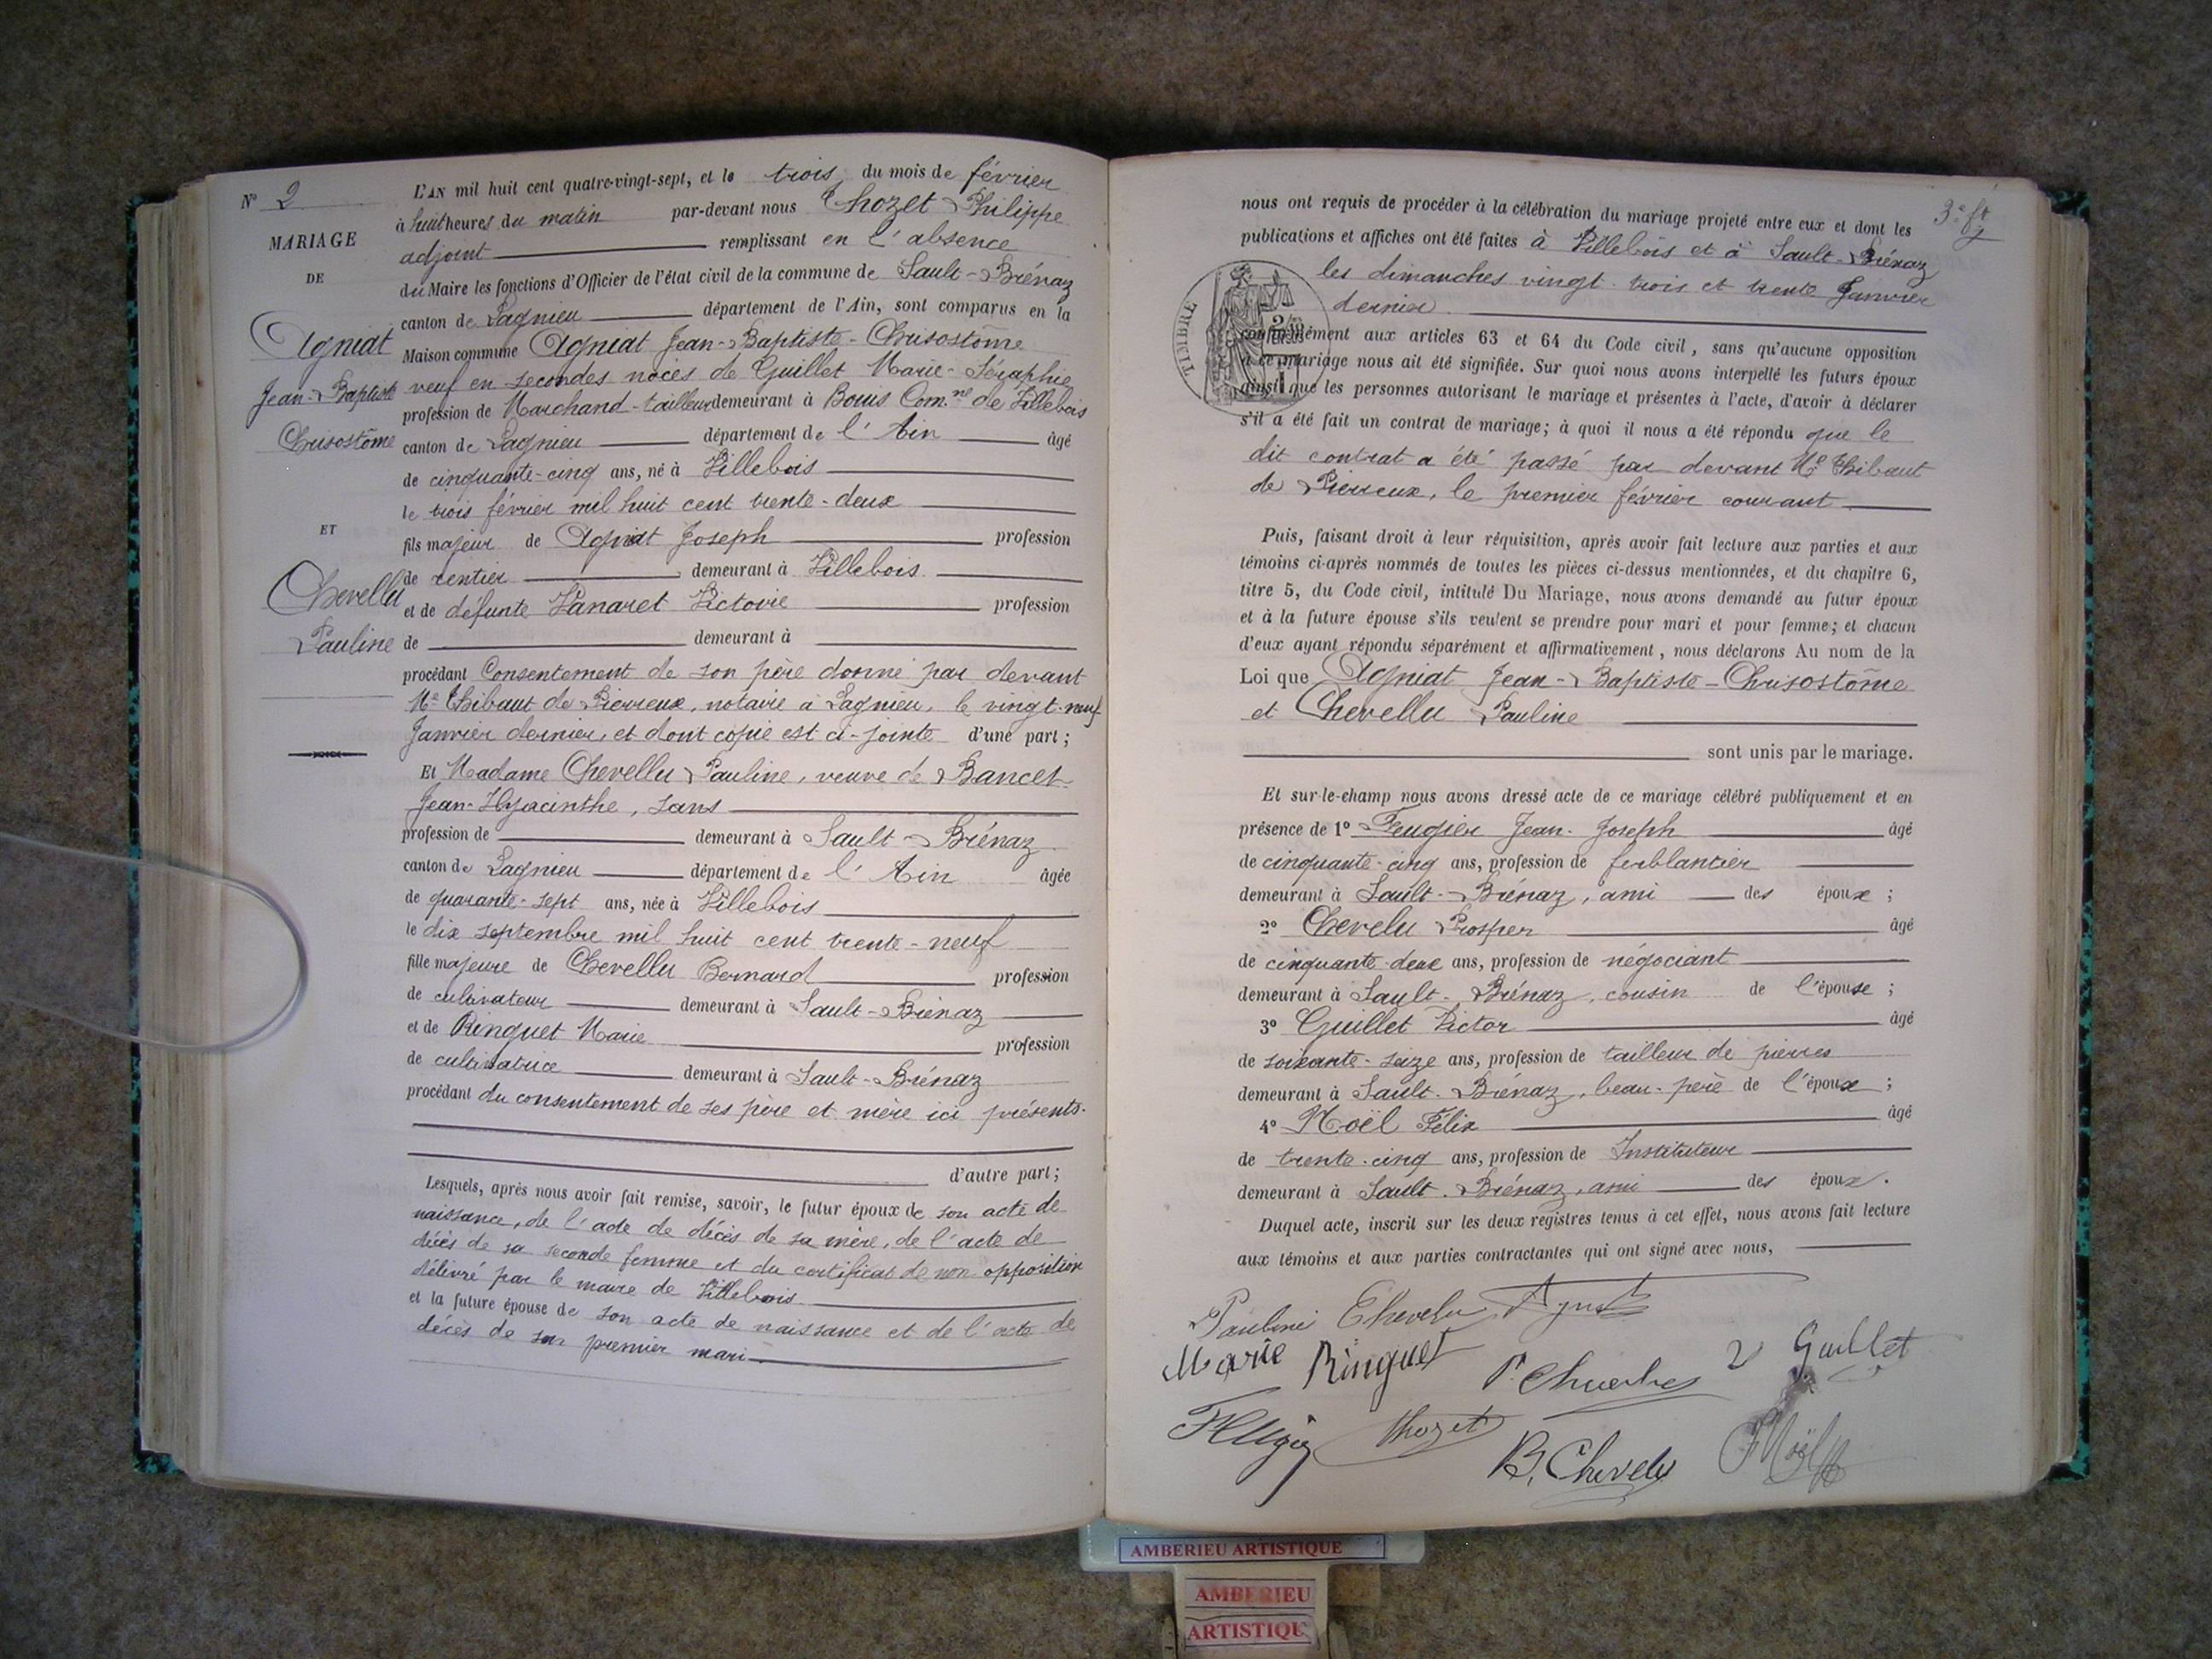 N° 2
MARIAGE
DE
Agniat
Jean-Baptiste
Chrisostôme
ET
Chevellu
Pauline
L'AN mil huit cent quatre-vingt-sept, et le trois du mois de février
à huit heures du matin par-devant nous Thozet Philippe
adjoint remplissant en l'absence
du Maire les fonctions d'Officier de l'état civil de la commune de Sault-Brénaz
canton de Lagnieu département de l'Ain, sont comparus en la
Maison commune Agniat Jean-Baptiste-Chrisostôme
veuf en secondes noces de Guillet Marie-Séraphie
profession de Marchand-tailleur demeurant à Bouis Com.ne de Villebois
canton de Lagnieu département de l'Ain âgé
de cinquante-cinq ans, né à Villebois
le trois février mil huit cent trente-deux
fils majeur de Agniat Joseph profession
de rentier demeurant à Villebois
et de défunte Vanaret Victoire profession
de demeurant à
procédant Consentement de son père donné par devant
Me Thibaut de Pierreux, notaire à Lagnieu, le vingt-neuf
Janvier dernier, et dont copie est ci-jointe d'une part;
Et Madame Chevellu Pauline, veuve de Bancet
Jean-Hyacinthe, sans
profession de demeurant à Sault-Brénaz
canton de Lagnieu département de l'Ain âgée
de quarante-sept ans, née à Villebois
le dix septembre mil huit cent trente-neuf
fille majeure de Chevellu Bernard profession
de cultivateur demeurant à Sault-Brénaz
et de Ringuet Marie profession
de cultivatrice demeurant à Sault-Brénaz
procédant du consentement de ses père et mère ici présents.
d'autre part;
Lesquels, après nous avoir fait remise, savoir, le futur époux de son acte de
naissance, de l'acte de décès de sa mère, de l'acte de
décès de sa seconde femme et du certificat de non opposition
délivré par le maire de Villebois
et la future épouse de son acte de naissance et de l'acte de
décès de son premier mari
3e ft
nous ont requis de procéder à la célébration du mariage projeté entre eux et dont les
publications et affiches ont été faites à Villebois et à Sault-Brénaz
les dimanches vingt-trois et trente Janvier
dernier
TIMBRE
conformément aux articles 63 et 64 du Code civil, sans qu'aucune opposition
à ce mariage nous ait été signifiée. Sur quoi nous avons interpellé les futurs époux
ainsi que les personnes autorisant le mariage et présentes à l'acte, d'avoir à déclarer
s'il a été fait un contrat de mariage; à quoi il nous a été répondu que le
dit contrat a été passé par devant Me Thibaut
de Pierreux, le premier février courant
Puis, faisant droit à leur réquisition, après avoir fait lecture aux parties et aux
témoins ci-après nommés de toutes les pièces ci-dessus mentionnées, et du chapitre 6,
titre 5, du Code civil, intitulé Du Mariage, nous avons demandé au futur époux
et à la future épouse s'ils veulent se prendre pour mari et pour femme; et chacun
d'eux ayant répondu séparément et affirmativement, nous déclarons Au nom de la
Loi que Agniat Jean-Baptiste-Chrisostôme
et Chevellu Pauline
sont unis par le mariage.
Et sur-le-champ nous avons dressé acte de ce mariage célébré publiquement et en
présence de 1° Feugier Jean-Joseph âgé
de cinquante-cinq ans, profession de ferblantier
demeurant à Sault-Brénaz, ami des époux;
2° Chevelu Prosper âgé
de cinquante-deux ans, profession de négociant
demeurant à Sault-Brénaz, cousin de l'épouse;
3° Guillet Victor âgé
de soixante-seize ans, profession de tailleur de pierres
demeurant à Sault-Brénaz, beau-père de l'époux;
4° Noël Félix âgé
de trente-cinq ans, profession de Instituteur
demeurant à Sault-Brénaz, ami des époux.
Duquel acte, inscrit sur les deux registres tenus à cet effet, nous avons fait lecture
aux témoins et aux parties contractantes qui ont signé avec nous,
Pauline Chevelu Agniat
Marie Ringuet P. Chevelu V Guillet
Feugier Thozet B. Chevelu F Noël
AMBERIEU ARTISTIQUE
AMBERIEU
ARTISTIQU